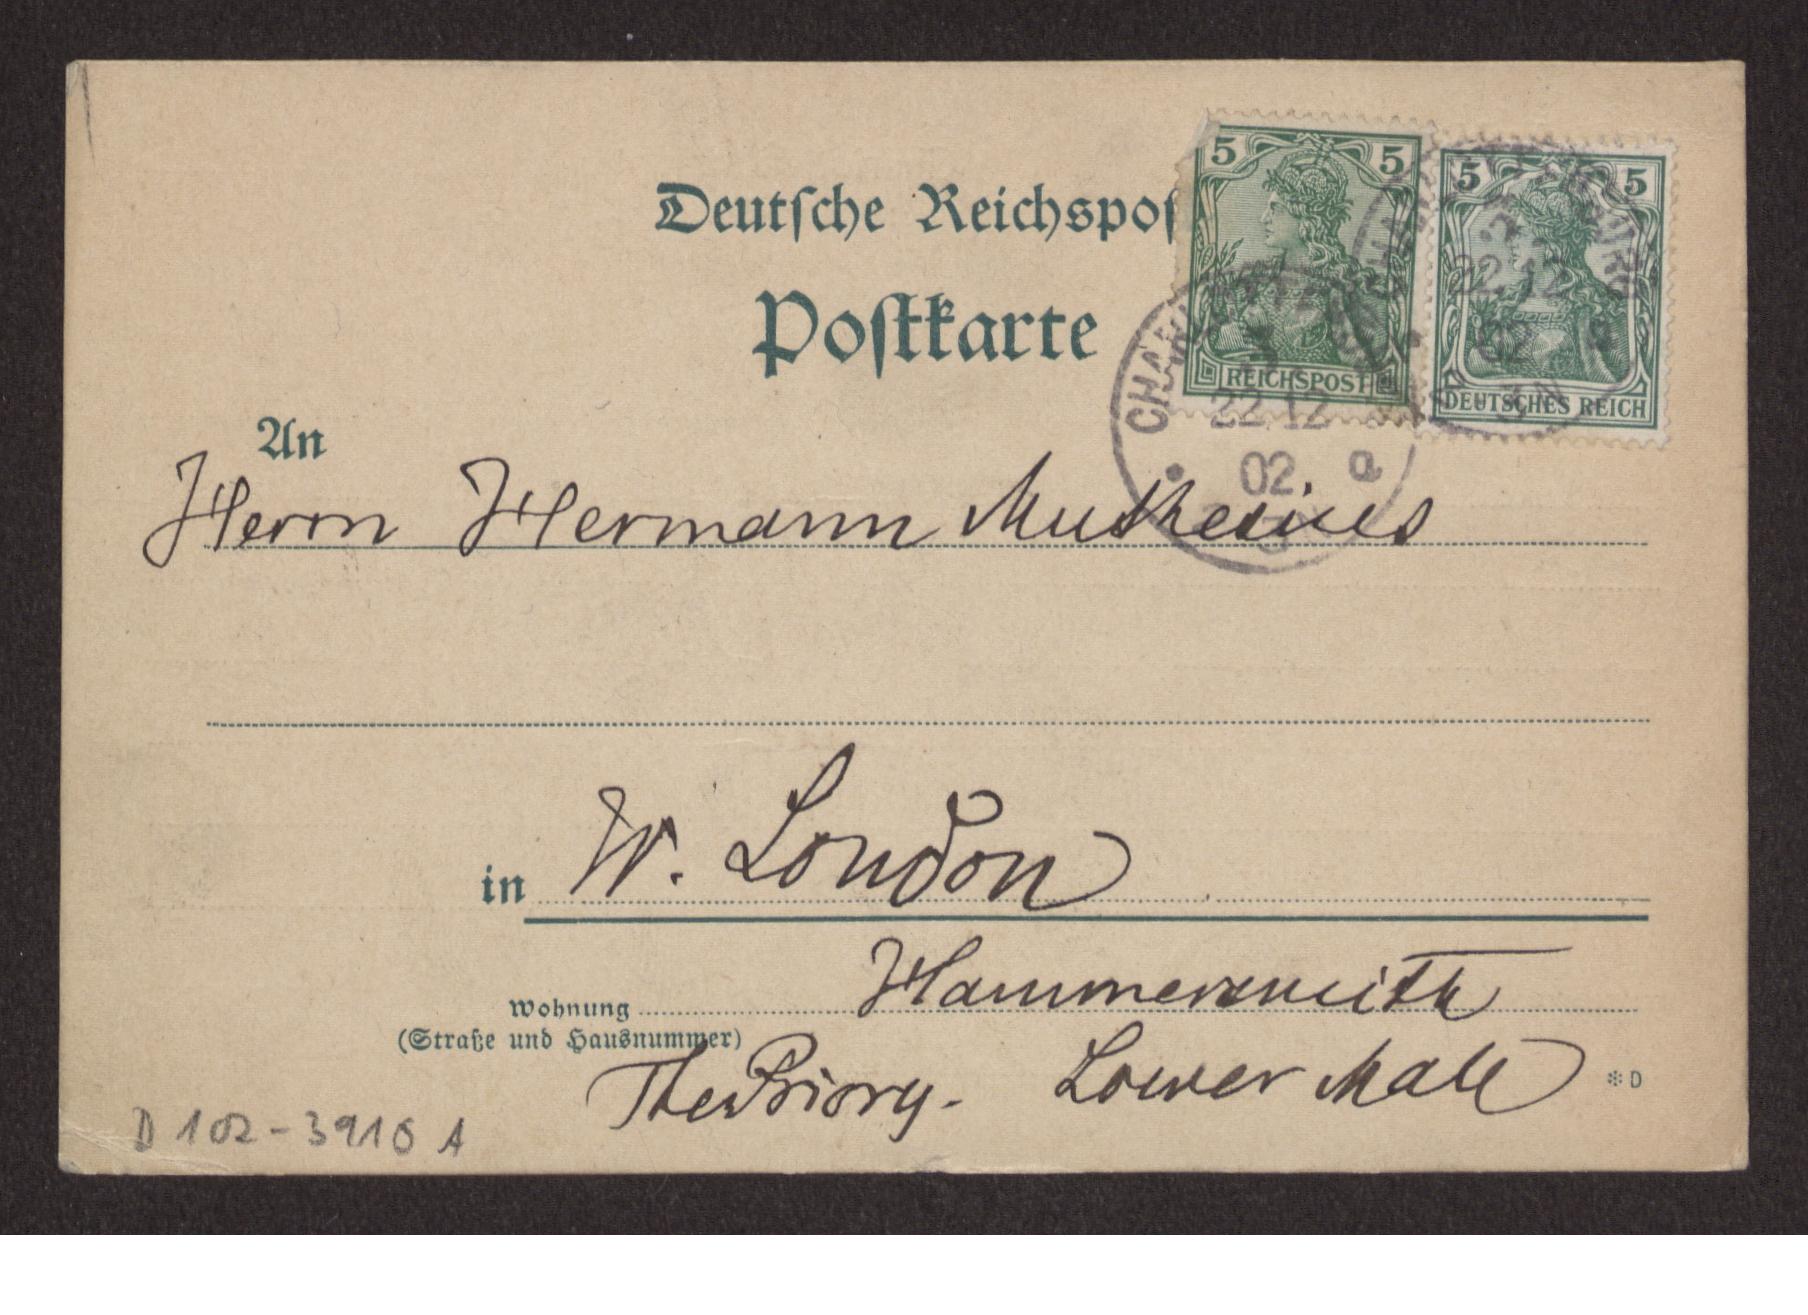 Deutsche Reichspos
Postkarte
5 5
REICHSPOST
5 5
DEUTSCHES REICH
22.12
02
CHA
22.12
02 a
An
Herrn Hermann Muthesius
in W. London
Wohnung Hammersmith
(Straße und Hausnummer)
The Priory. Lower Mall
*D
D 102-3910 A